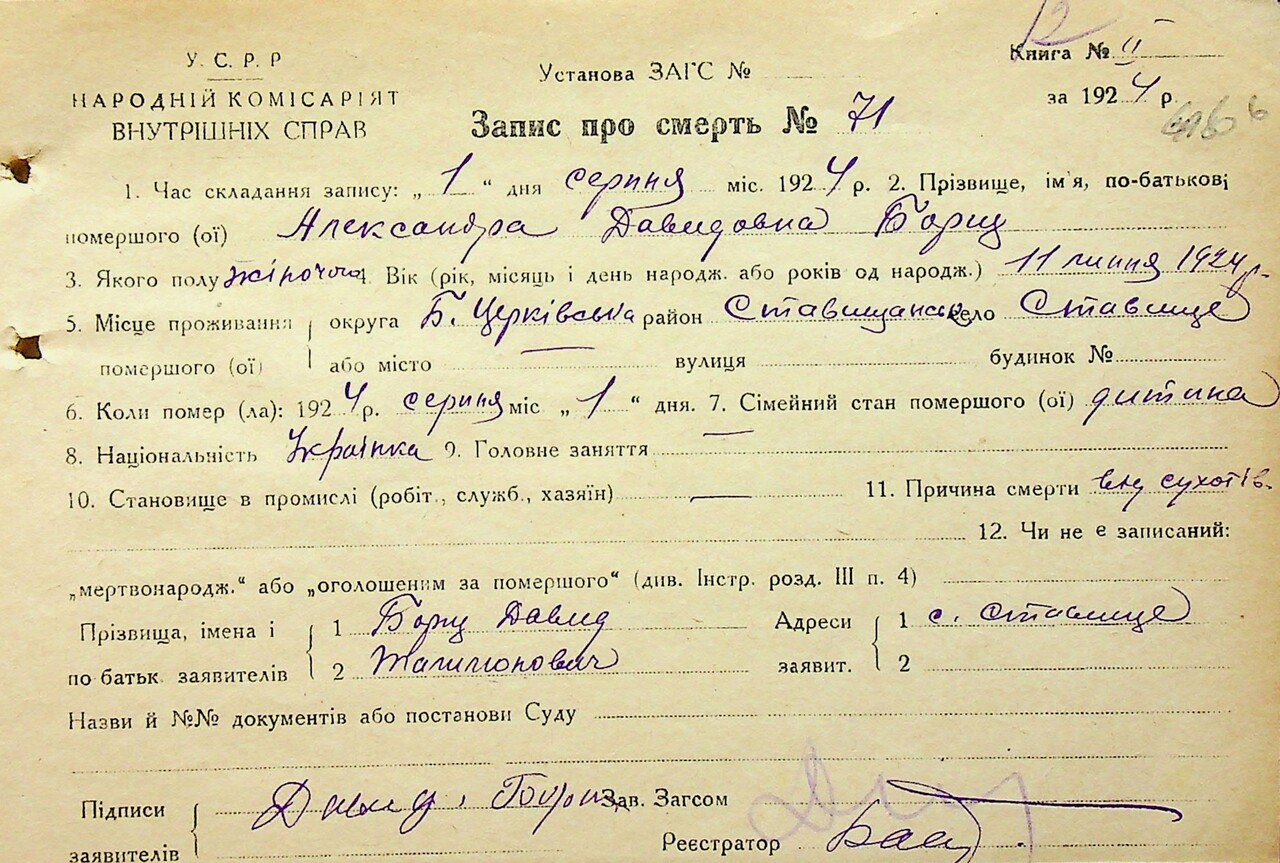 У. С. Р. Р
НАРОДНІЙ КОМІСАРІЯТ
ВНУТРІШНІХ СПРАВ
Установа ЗАГС №
Книга № II
за 1924 р.
Запис про смерть № 71
1. Час складання запису: „ 1 “ дня серпня міс. 1924 р. 2. Прізвище, ім'я, по-батькові
помершого (ої) Александра Давидовна Борщ
3. Якого полу жіночого 4. Вік (рік, місяць і день народж. або років од народж.) 11 липня 1924 р.
5. Місце проживання округа Б. Церківська район Ставищанськ село Ставище
помершого (ої) або місто — вулиця будинок №
6. Коли помер (ла): 1924 р. серпня міс „ 1 “ дня. 7. Сімейний стан помершого (ої) дитина
8. Національність Українка 9. Головне заняття —
10. Становище в промислі (робіт., служб., хазяїн) — 11. Причина смерти від сухотів.
12. Чи не є записаний:
„мертвонародж.“ або „оголошеним за помершого“ (див. Інстр. розд. III п. 4)
Прізвища, імена і 1 Борщ Давид Адреси 1 с. Ставище
по батьк. заявителів 2 заявит. 2
Назви й №№ документів або постанови Суду
Підписи Давид Борщ Зав. Загсом
заявителів Реєстратор